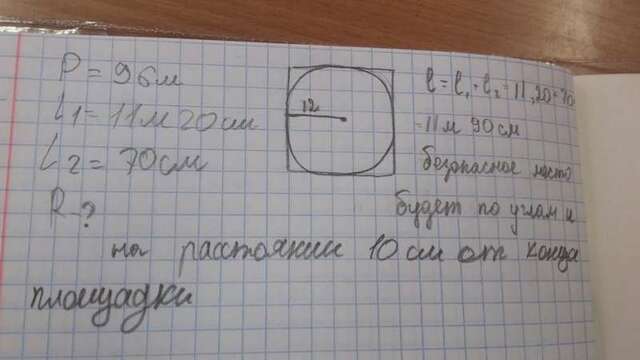 P = 96м
l1 = 11м 20см
L2 = 70см
R - ?
12
l = l1 + l2 = 11,20 + 70
= 11м 90см
безопасное место
будет по углам и
на расстоянии 10 см от конца
площадки